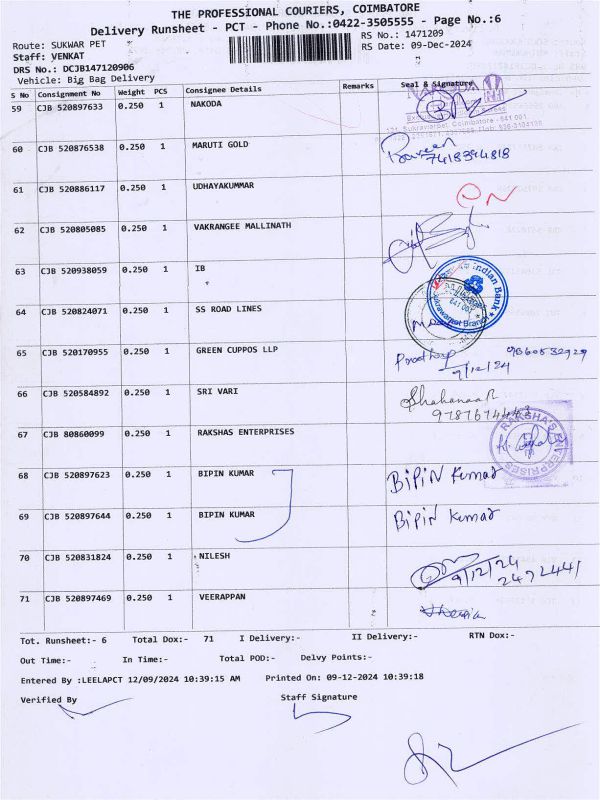 THE PROFESSIONAL COURIERS, COIMBATORE
Delivery Runsheet - PCT - Phone No.:0422-3505555 - Page No.:6
Route: SUKWAR PET
RS No.: 1471209
Staff: VENKAT
RS Date: 09-Dec-2024
DRS No.: DCJB147120906
Vehicle: Big Bag Delivery
S No Consignment No Weight PCS Consignee Details Remarks Seal & Signature
59 CJB 520897633 0.250 1 NAKODA
60 CJB 520876538 0.250 1 MARUTI GOLD Praveen
7418394818
61 CJB 520886117 0.250 1 UDHAYAKUMMAR
62 CJB 520805085 0.250 1 VAKRANGEE MALLINATH
63 CJB 520938059 0.250 1 IB Indian Bank
64 CJB 520824071 0.250 1 SS ROAD LINES
65 CJB 520170955 0.250 1 GREEN CUPPOS LLP 9360532929
9/12/24
66 CJB 520584892 0.250 1 SRI VARI
67 CJB 80860099 0.250 1 RAKSHAS ENTERPRISES RAKSHA'S ENTERPRISES
68 CJB 520897623 0.250 1 BIPIN KUMAR BIPIN Kumar
69 CJB 520897644 0.250 1 BIPIN KUMAR BIPIN Kumar
70 CJB 520831824 0.250 1 NILESH 9/12/24
2472441
71 CJB 520897469 0.250 1 VEERAPPAN
Tot. Runsheet:- 6 Total Dox:- 71 I Delivery:- II Delivery:- RTN Dox:-
Out Time:- In Time:- Total POD:- Delvy Points:-
Entered By :LEELAPCT 12/09/2024 10:39:15 AM Printed On: 09-12-2024 10:39:18
Verified By Staff Signature